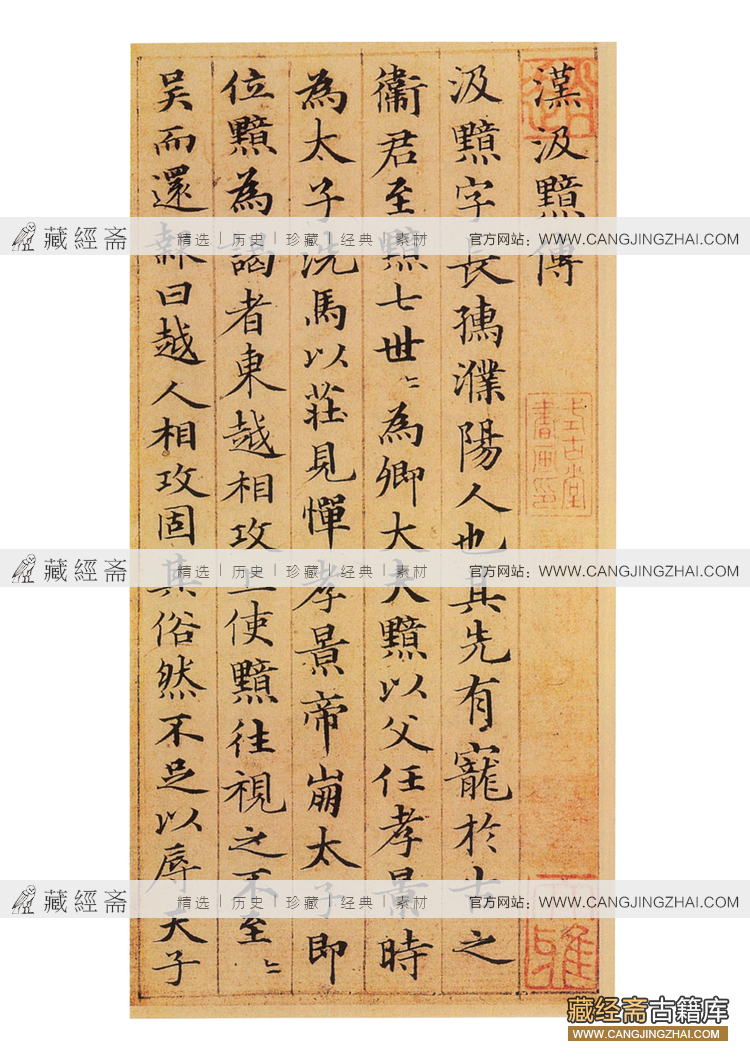 漢汲黯傳
汲黯字長孺濮陽人也其先有寵於古之
衛君至黯七世〻為卿大夫黯以父任孝景時
為太子洗馬以莊見憚孝景帝崩太子即
位黯為謁者東越相攻上使黯往視之不至〻
吳而還報曰越人相攻固其俗然不足以辱天子
式古堂書畫印
藏經斋 精选 | 历史 | 珍藏 | 经典 | 素材 官方网站：WWW.CANGJINGZHAI.COM
藏經斋 精选 | 历史 | 珍藏 | 经典 | 素材 官方网站：WWW.CANGJINGZHAI.COM
藏經斋 精选 | 历史 | 珍藏 | 经典 | 素材 官方网站：WWW.CANGJINGZHAI.COM
藏经斋古籍库
WWW.CANGJINGZHAI.COM